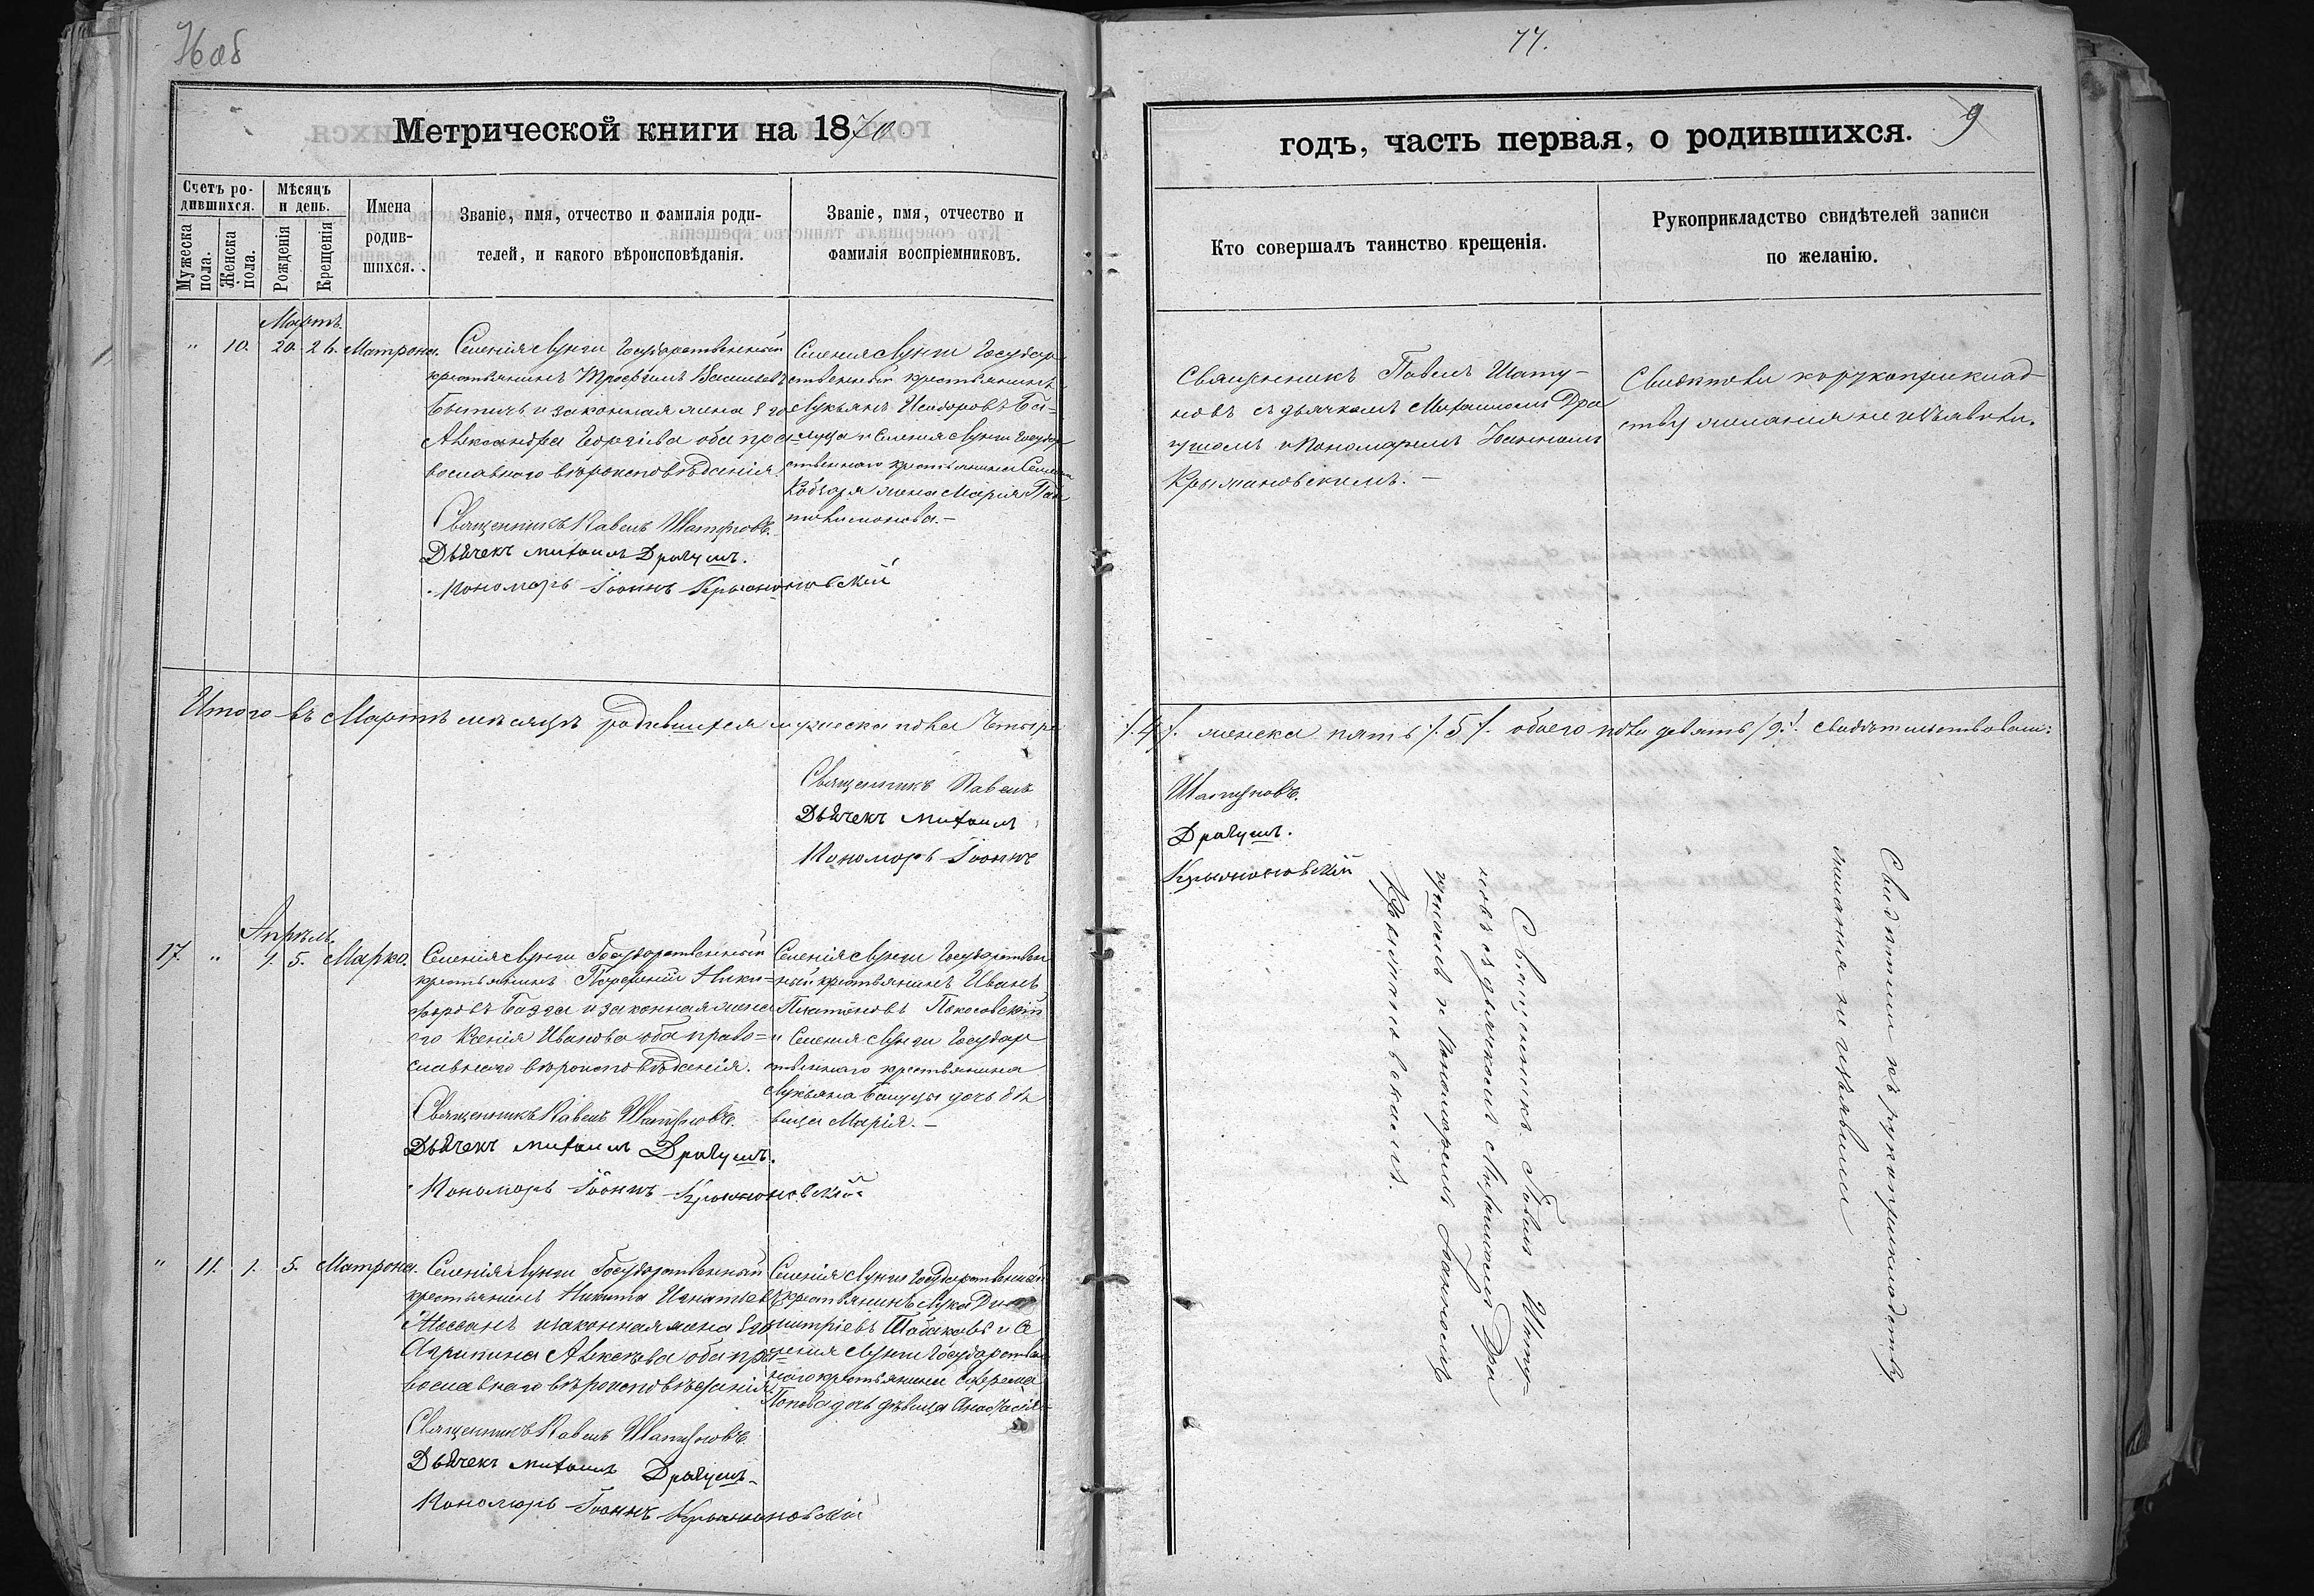 77.
Метрической книги на 1870
годъ, часть первая, о родившихся.
9
Счетъ ро-
дившихся.
Мужеска пола.
Женска пола.
Мѣсяцъ
и день.
Рожденія
Крещенія
Имена
родив-
шихся.
Званіе, имя, отчество и фамилія роди-
телей, и какого вѣроисповѣданія.
Званіе, имя, отчество и
фамилія воспріемниковъ.
Кто совершалъ таинство крещенія.
Рукоприкладство свидѣтелей записи
по желанію.
Мартъ
" 10. 20. 26. Матрона.
Селенія Лунги Государственный
крестьянинъ Трофимъ Васильевъ
и законная жена Его
Александра Георгіева оба пра-
вославнаго вѣроисповѣданія.
Священникъ Павелъ Шатуновъ.
Дьячекъ Михаилъ Драгушъ.
Пономарь Іоаннъ Крыжановскій
Селенія Лунги Государ
ственный крестьянинъ
Лукьянъ Исидоровъ Ба-
луца и Селенія Лунги Государ
ственнаго крестьянина
жена Марія Пан
телимонова.–
Священникъ Павелъ Шату-
новъ съ дьячкомъ Михаиломъ Дра
гушомъ и Пономаремъ Іоанномъ
Крыжановскимъ.–
Свидѣтели къ рукоприклад-
ству желанія не изъявили.
Итого въ Мартѣ мѣсяцѣ родившихся мужеска пола Четыре
/.4/. женска пять /.5/. обоего пола девять /9./ свидѣтельствовали:
Священникъ Павелъ Шатуновъ.
Дьячекъ Михаилъ Драгушъ.
Пономарь Іоаннъ Крыжановскій
Апрѣль.
17. " 1. 5. Марко.
Селенія Лунги Государственный
крестьянинъ Парфеній Ники-
форовъ и законная жена
его Ксенія Иванова оба право-
славнаго вѣроисповѣданія.
Священникъ Павелъ Шатуновъ.
Дьячекъ Михаилъ Драгушъ.
Пономарь Іоаннъ Крыжановскій
Селенія Лунги Государствен
ный крестьянинъ Иванъ
Платоновъ
и Селенія Лунги Государ
ственнаго крестьянина
Лукьяна Балуцы дочь дѣ
вица Марія.–
Священникъ Павелъ Шату-
новъ съ дьячкомъ Михаиломъ Дра
гушомъ и Пономаремъ Іоанномъ
Крыжановскимъ.
Свидѣтели къ рукоприкладству
желанія не изъявили
" 11. 1. 5. Матрона.
Селенія Лунги Государственный
крестьянинъ Никита Игнатьевъ
и законная жена Его
Агрипина Алексѣева оба пра-
вославнаго вѣроисповѣданія.
Священникъ Павелъ Шатуновъ.
Дьячекъ Михаилъ Драгушъ.
Пономарь Іоаннъ Крыжановскій
Селенія Лунги Государственный
крестьянинъ Лука Ди
митріевъ Табаковъ и Се
ленія Лунги Государствен
наго крестьянина Ефрема
Попова дочь дѣвица Анастасія